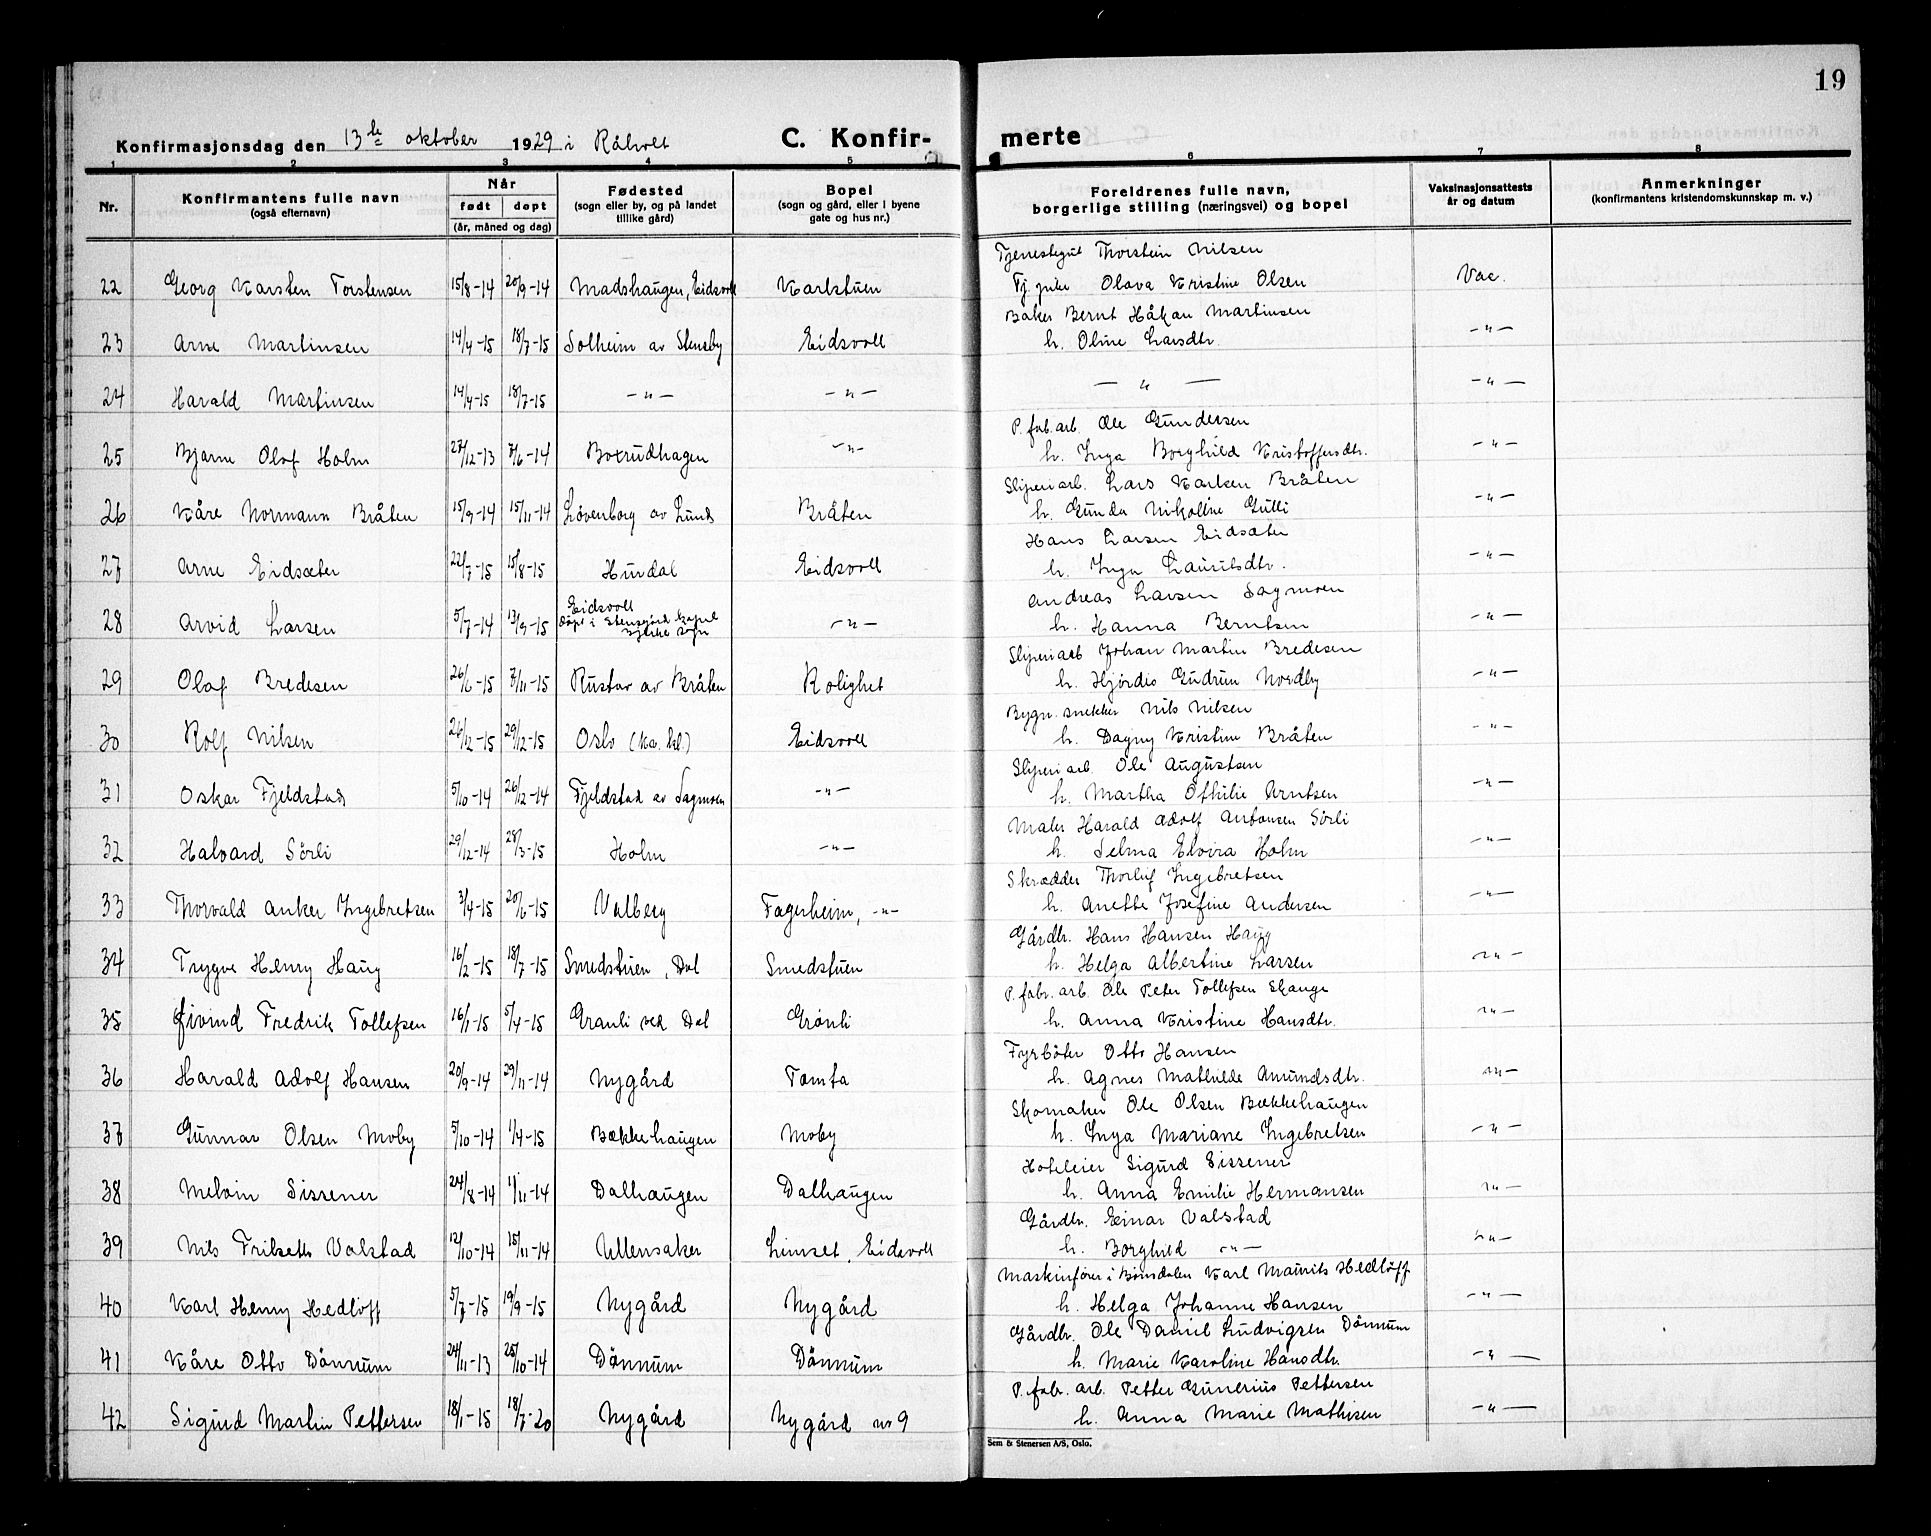 19
Konfirmasjonsdag den 13de oktober 1929 i Råholt C. Konfir- merte
1 2 3 4 5 6 7 8
Nr. Konfirmantens fulle navn (også efternavn) Når født døpt (år, måned og dag) Fødested (sogn eller by, og på landet tillike gård) Bopel (sogn og gård, eller i byene gate og hus nr.) Foreldrenes fulle navn, borgerlige stilling (næringsvei) og bopel Vaksinasjonsattests år og datum Anmerkninger (konfirmantens kristendomskunnskap m. v.)
Tjenestegut Thorstein Nilsen
22 Georg Karsten Torstensen 15/8-14 20/9-14 Madshaugen, Eidsvoll Karlstuen Tj.pike Olava Kristine Olsen Vac.
Baker Bernt Håkan Martinsen
23 Arne Martinsen 14/4-15 18/7-15 Solheim av Stensby Eidsvoll h. Oline Larsdtr. -"-
24 Harald Martinsen 14/4-15 18/7-15 -"- -"- -"- -"-
P.fab.arb. Ole Gundersen
25 Bjarne Olaf Holm 27/12-13 7/6-14 Botrudhagen -"- h. Inga Borghild Kristoffersdtr. -"-
Sliperiarb. Lars Karlsen Bråten
26 Kåre Normann Bråten 15/9-14 15/11-14 Løvenborg av Lund Bråten h. Gunda Nikoline Gulli -"-
Hans Larsen Eidsæter
27 Arne Eidsæter 22/7-15 15/8-15 Hurdal Eidsvoll h. Inga Lauritsdtr. -"-
Andreas Larsen Sagmoen
28 Arvid Larsen 5/7-14 13/9-15 Eidsvoll døpt i Stensgård kapel sogn -"- h. Hanna Berntsen -"-
Sliperiarb Johan Martin Bredesen
29 Olaf Bredesen 26/6-15 7/11-15 Rustad av Bråten Rolighet h. Hjördis Gudrun Nordby -"-
Bygn.snekker Nils Nilsen
30 Rolf Nilsen 26/12-15 29/12-15 Oslo Eidsvoll h. Dagny Kristine Bråten -"-
Sliperiarb. Ole Augustsen
31 Oskar Fjeldstad 5/10-14 26/12-14 Fjeldstad av Sagmoen -"- h. Martha Othilie Arntsen -"-
Maler Harald Adolf Antonsen Sörli
32 Halvard Sörli 29/12-14 28/3-15 Holm -"- h. Selma Elvira Holm -"-
Skrædder Thorleif Ingebretsen
33 Thorvald Anker Ingebretsen 3/4-15 20/6-15 Valberg Fagerheim, -"- h. Anette Josefine Andersen -"-
Gårdbr. Hans Hansen Haug
34 Trygve Henry Haug 16/2-15 18/7-15 Smedstuen, Dal Smedstuen h. Helga Albertine Larsen -"-
P.fabr.arb. Ole Peter Tollefsen Skaugr
35 Øivind Fredrik Tollefsen 16/1-15 5/4-15 Granli ved Dal Grönli h. Anna Kristine Hansdtr. -"-
Fyrböter Otto Hansen
36 Harald Adolf Hansen 20/9-14 29/11-14 Nygård Tomta h. Agnes Mathilde Amundsdtr. -"-
Skomaker Ole Olsen Bækkehaugen
37 Gunnar Olsen Moby 5/10-14 1/4-15 Bækkehaugen Moby h. Inga Mariane Ingebretsen -"-
Hoteleier Sigurd Sissener
38 Melvin Sissener 24/8-14 1/11-14 Dalhaugen Dalhaugen h. Anna Emilie Hermansen -"-
Gårdbr. Einar Valstad
39 Nils Frilseth Valstad 12/10-14 15/11-14 Ullensaker Linset, Eidsvoll h. Borghild -"- -"-
Maskinfører i Bönsdalen Karl Maurits Hedlöff
40 Karl Henry Hedlöff 5/7-15 19/9-15 Nygård Nygård h. Helga Johanne Hansen -"-
Gårdbr. Ole Daniel Ludvigsen Dönnum
41 Kåre Otto Dönnum 24/11-13 25/10-14 Dönnum Dönnum h. Marie Karoline Hansdtr. -"-
P.fabr.arb. Petter Gunerius Pettersen
42 Sigurd Martin Pettersen 18/1-15 18/7-20 Nygård Nygård nr 9 h. Anna Marie Mathisen -"-
Sem & Stenersen A/S, Oslo.